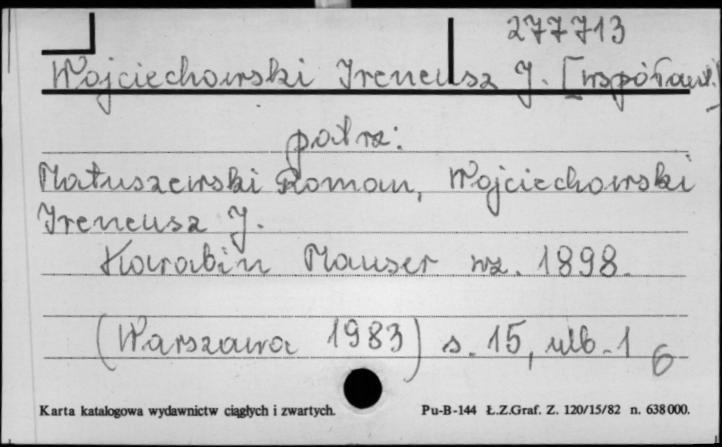 277713
Wojciechowski Ireneusz J. [współaut.]
patrz:
Matuszewski Roman, Wojciechowski
Ireneusz J.
Karabin Mauser wz. 1898.
(Warszawa 1983) s. 15, ulb. 1
6
Karta katalogowa wydawnictw ciągłych i zwartych. Pu-B-144 Ł.Z.Graf. Z. 120/15/82 n. 638000.